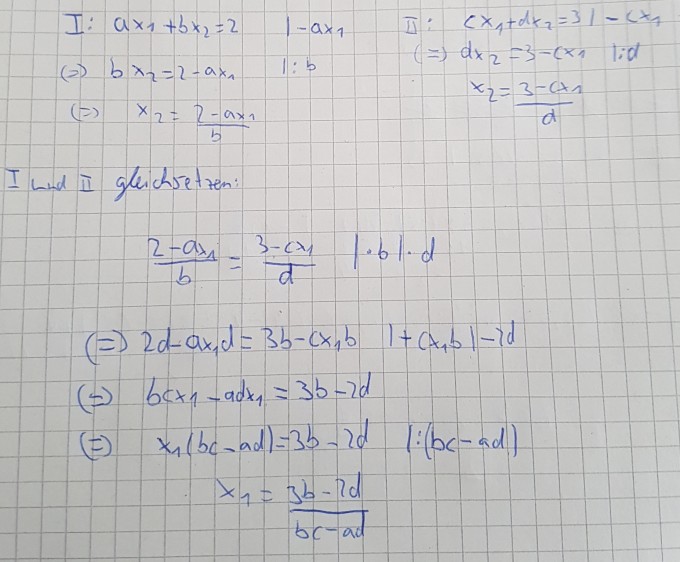 I: ax₁ + bx₂ = 2 | -ax₁
(=) bx₂ = 2 - ax₁ | : b
(=) x₂ = (2 - ax₁)/b
II: cx₁ + dx₂ = 3 | - cx₁
(=) dx₂ = 3 - cx₁ | : d
x₂ = (3 - cx₁)/d
I und II gleichsetzen:
(2 - ax₁)/b = (3 - cx₁)/d | · b | · d
(=) 2d - ax₁d = 3b - cx₁b | + cx₁b | - 2d
(=) bcx₁ - adx₁ = 3b - 2d
(=) x₁(bc - ad) = 3b - 2d | : (bc - ad)
x₁ = (3b - 2d)/(bc - ad)